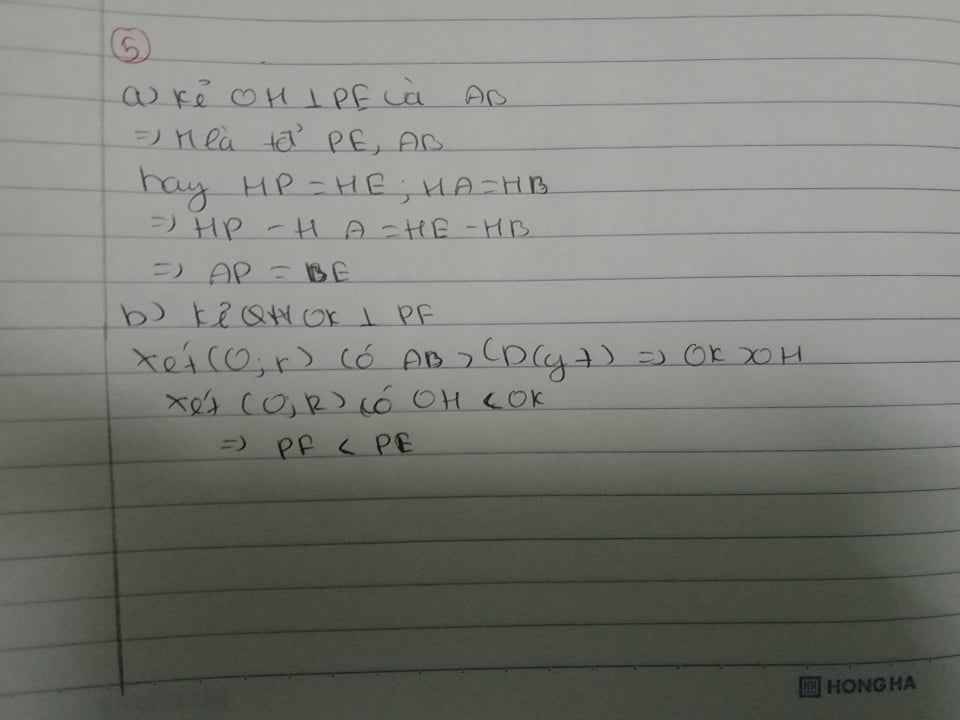 5
a) Kẻ OH ⊥ PE và AB
=> H là tđ PE, AB
hay HP = HE ; HA = HB
=> HP - H A = HE - HB
=> AP = BE
b) Kẻ OK ⊥ PF
Xét (O;r) có AB > CD (gt) => OK > OH
Xét (O,R) có OH < OK
=> PF < PE
HONG HA